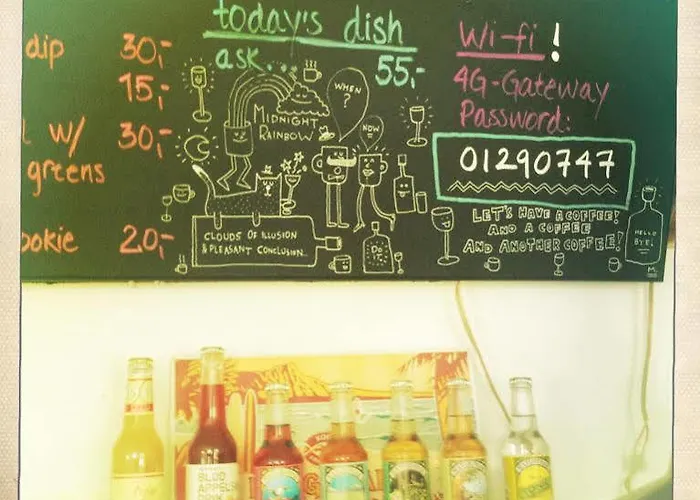 today's dish
ask... 55,-
dip 30,-
15,-
w/ 30,-
greens
ookie 20,-
Wi-fi!
4G-Gateway
Password:
01290747
MIDNIGHT
RAINBOW
WHEN
?
NOW
CLOUDS OF ILLUSION
& PLEASANT CONCLUSION...
LET'S HAVE A COFFEE!
AND A COFFEE
AND ANOTHER COFFEE!
HELLO
BYE!
BLOD
APPELSIN